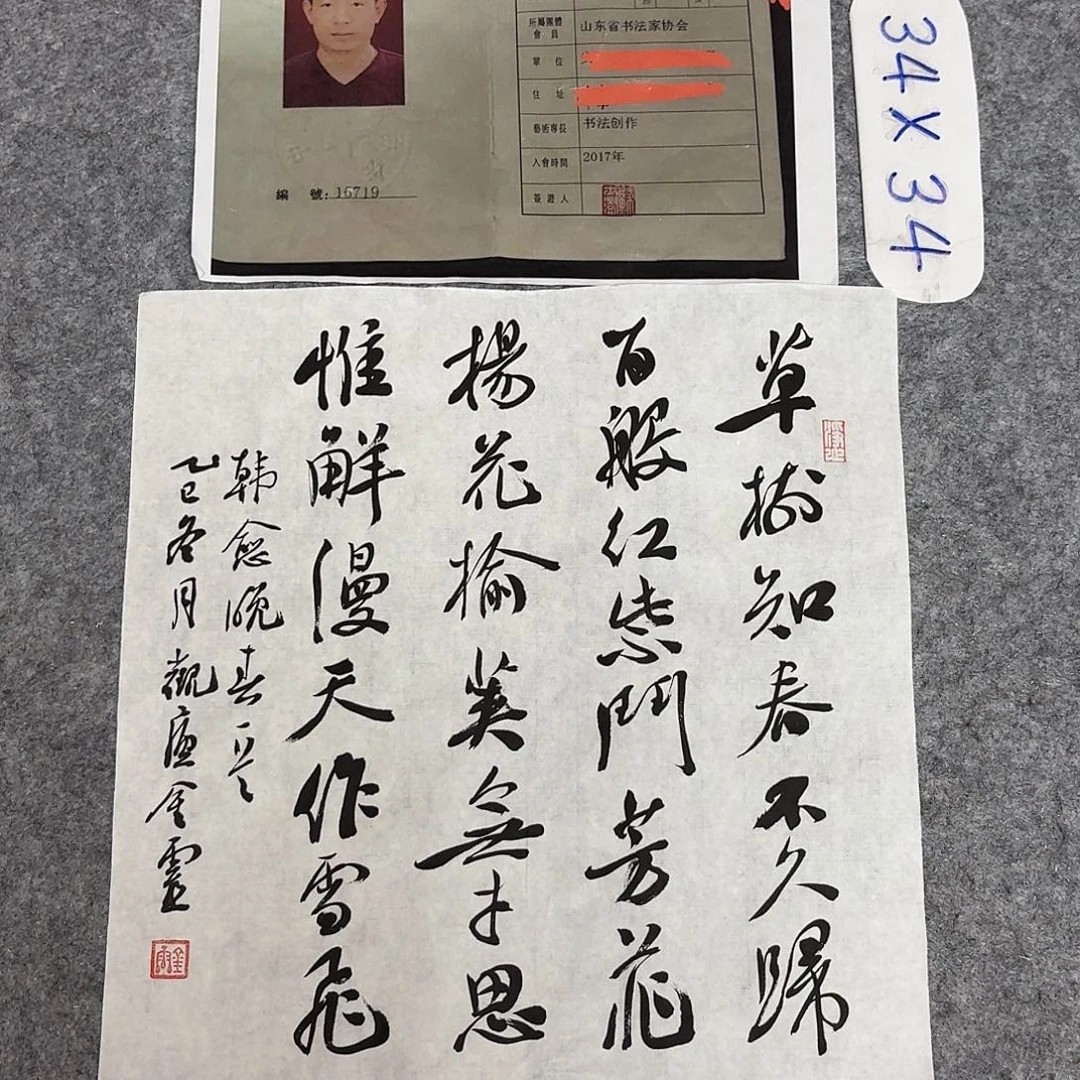 所屬團體會員 山东省书法家协会
單位
住址
藝術專長 书法创作
入會時間 2017年
簽證人
編號:16719
34X34
草樹知春不久歸
百般紅紫鬥芳菲
楊花榆莢無才思
惟解漫天作雪飛
韩愈晚春一首
乙巳冬月觀廬金靈